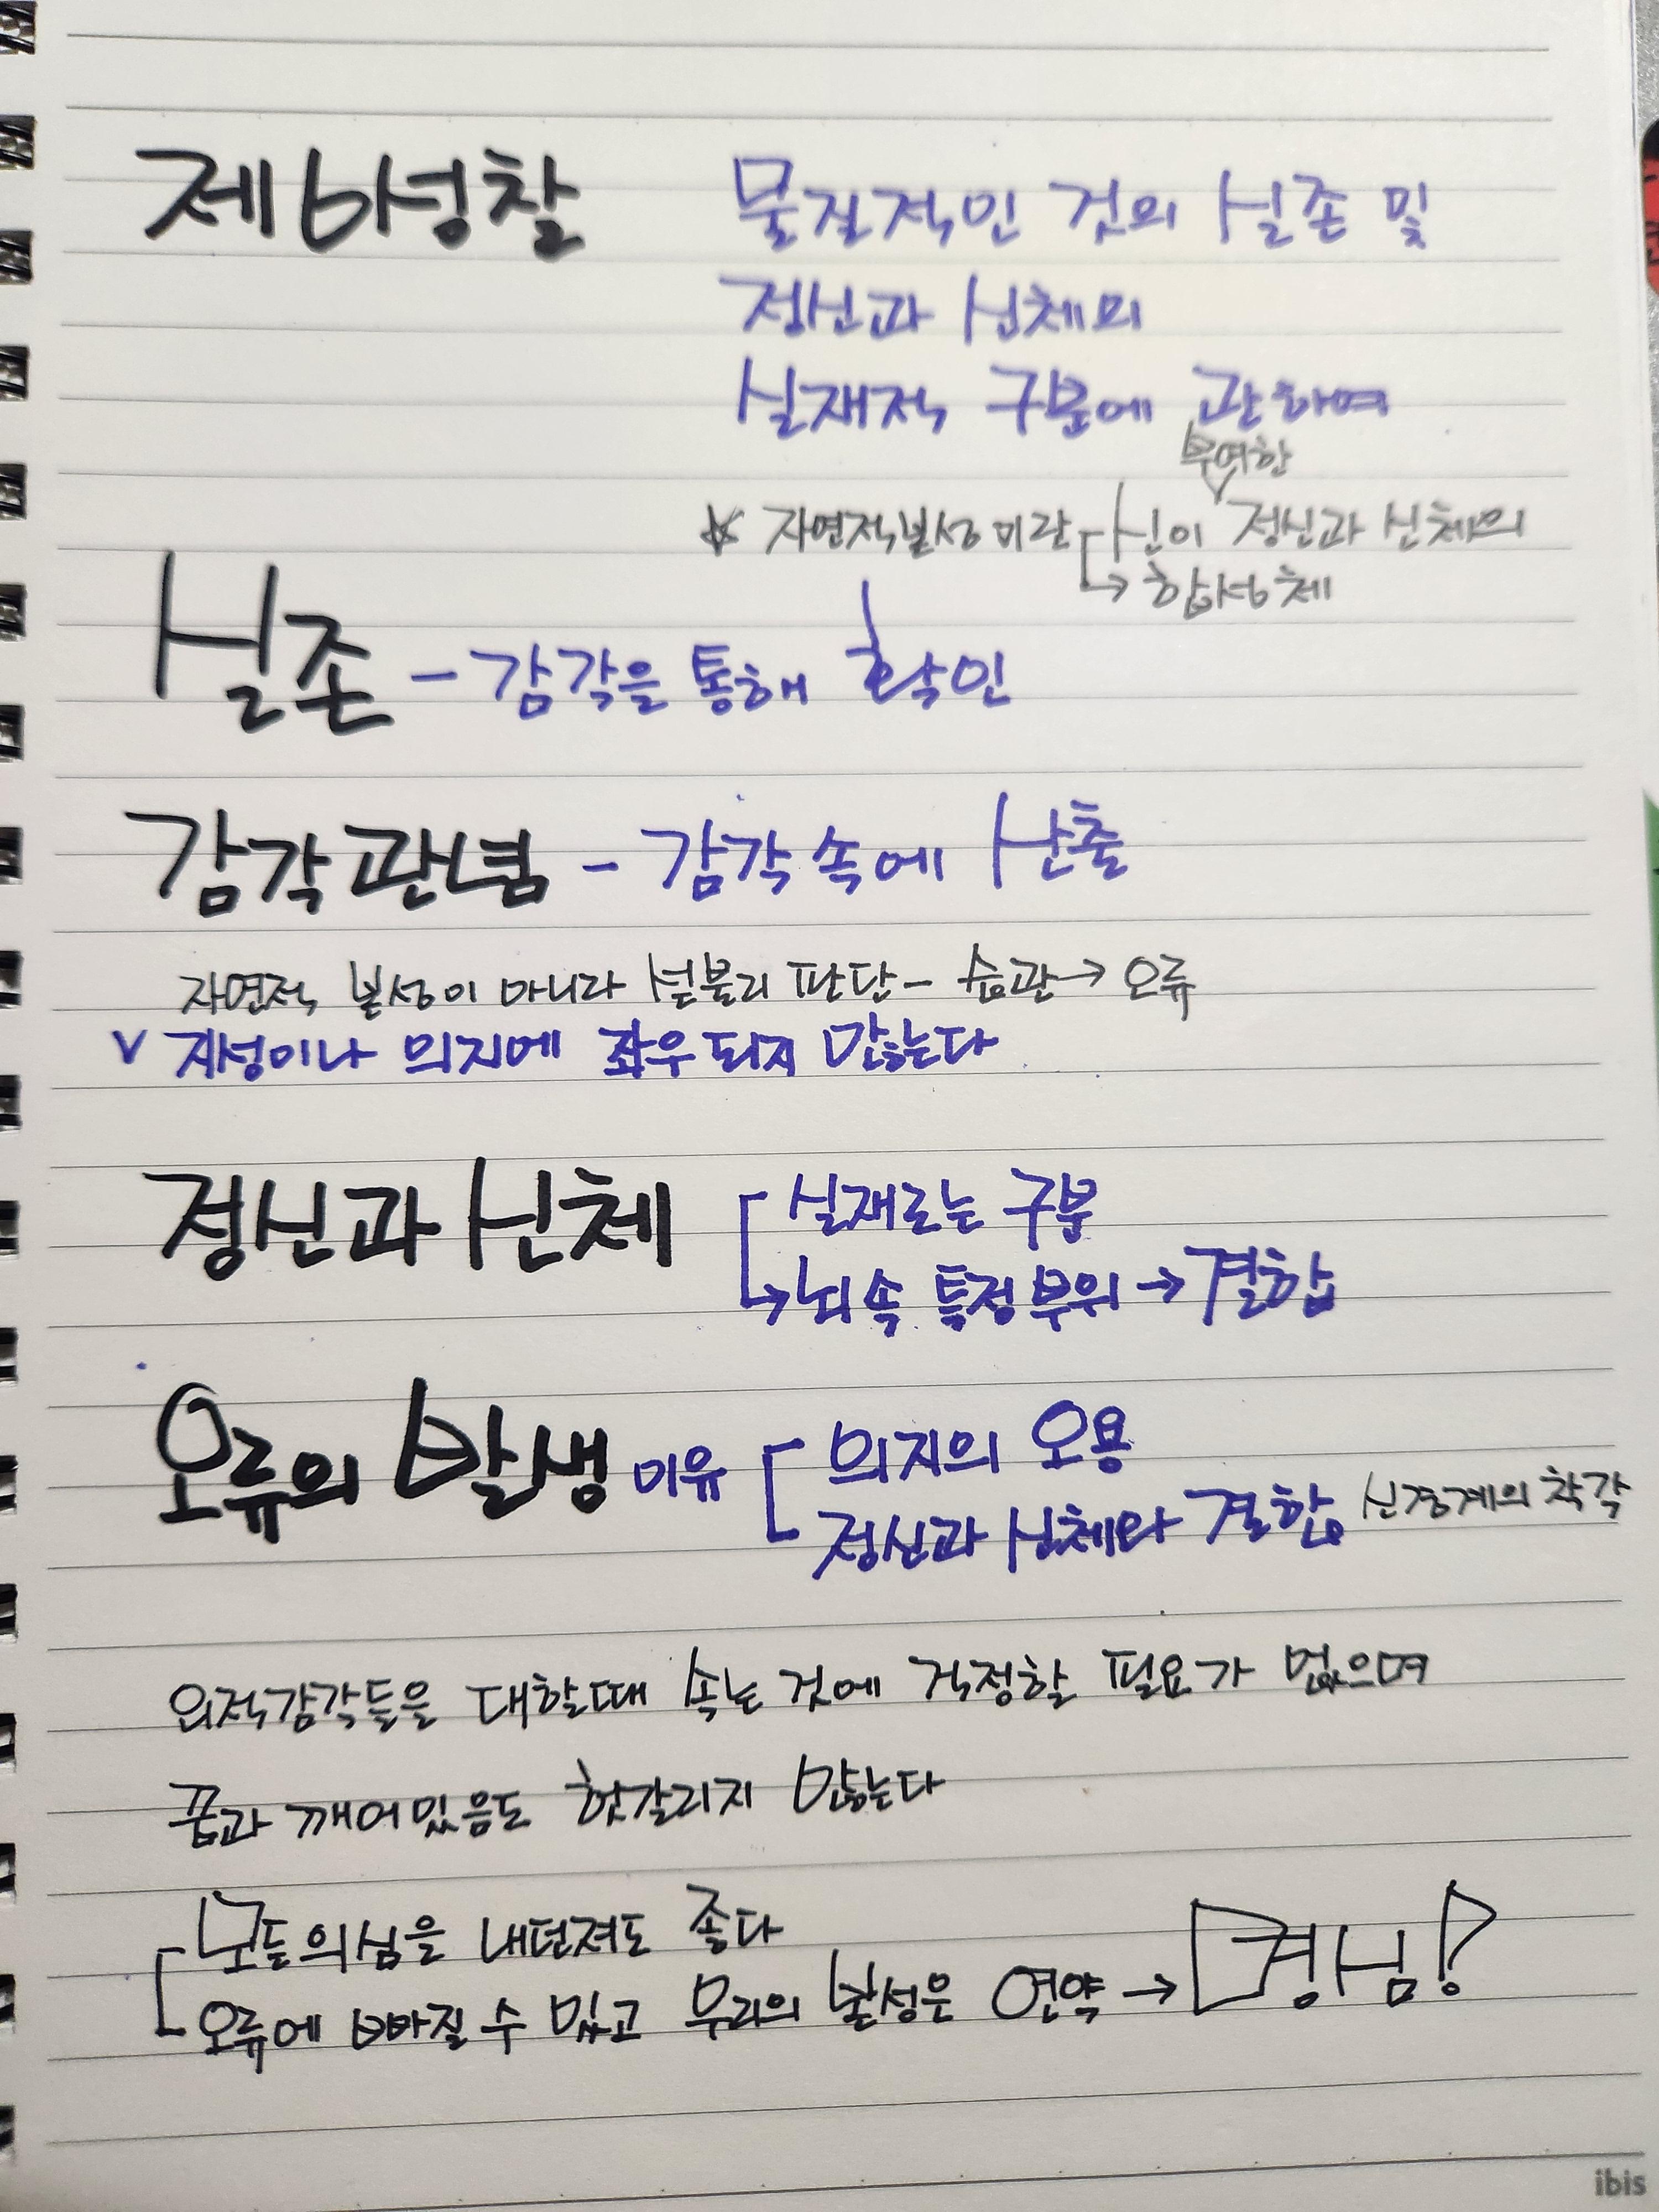 제6성찰 물질적인 것의 실존 및
정신과 신체의
실재적 구분에 관하여
부여한
☆ 자연적 본성이란 신이 정신과 신체의
→ 합성체
실존 - 감각을 통해 확인
감각관념 - 감각 속에 산출
자연적 본성이 아니라 섣불리 판단 - 습관 → 오류
V 지성이나 의지에 좌우되지 않는다
정신과 신체 실재로는 구분
→ 뇌 속 특정부위 → 결합
오류의 발생 이유 의지의 오용
정신과 신체와 결합 신경계의 착각
외적감각들을 대할때 속는 것에 걱정할 필요가 없으며
꿈과 깨어있음도 헛갈리지 않는다
모든 의심을 내던져도 좋다
오류에 빠질 수 있고 우리의 본성은 연약 → 명심!
ibis